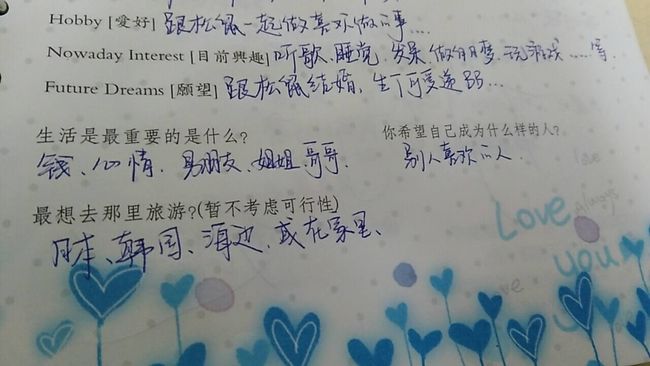 Hobby [愛好] 跟松鼠一起做喜欢做的事....
Nowaday Interest [目前興趣] 听歌、睡觉、发呆、做白日梦、玩游戏......等
Future Dreams [願望] 跟松鼠结婚，生可爱
生活是最重要的是什么? 你希望自己成为什么样的人?
钱、心情、男朋友、姐姐哥哥、 别人喜欢的人
最想去那里旅游?(暂不考虑可行性)
日本、韩国、海边、或在家里、
love
Love always
you